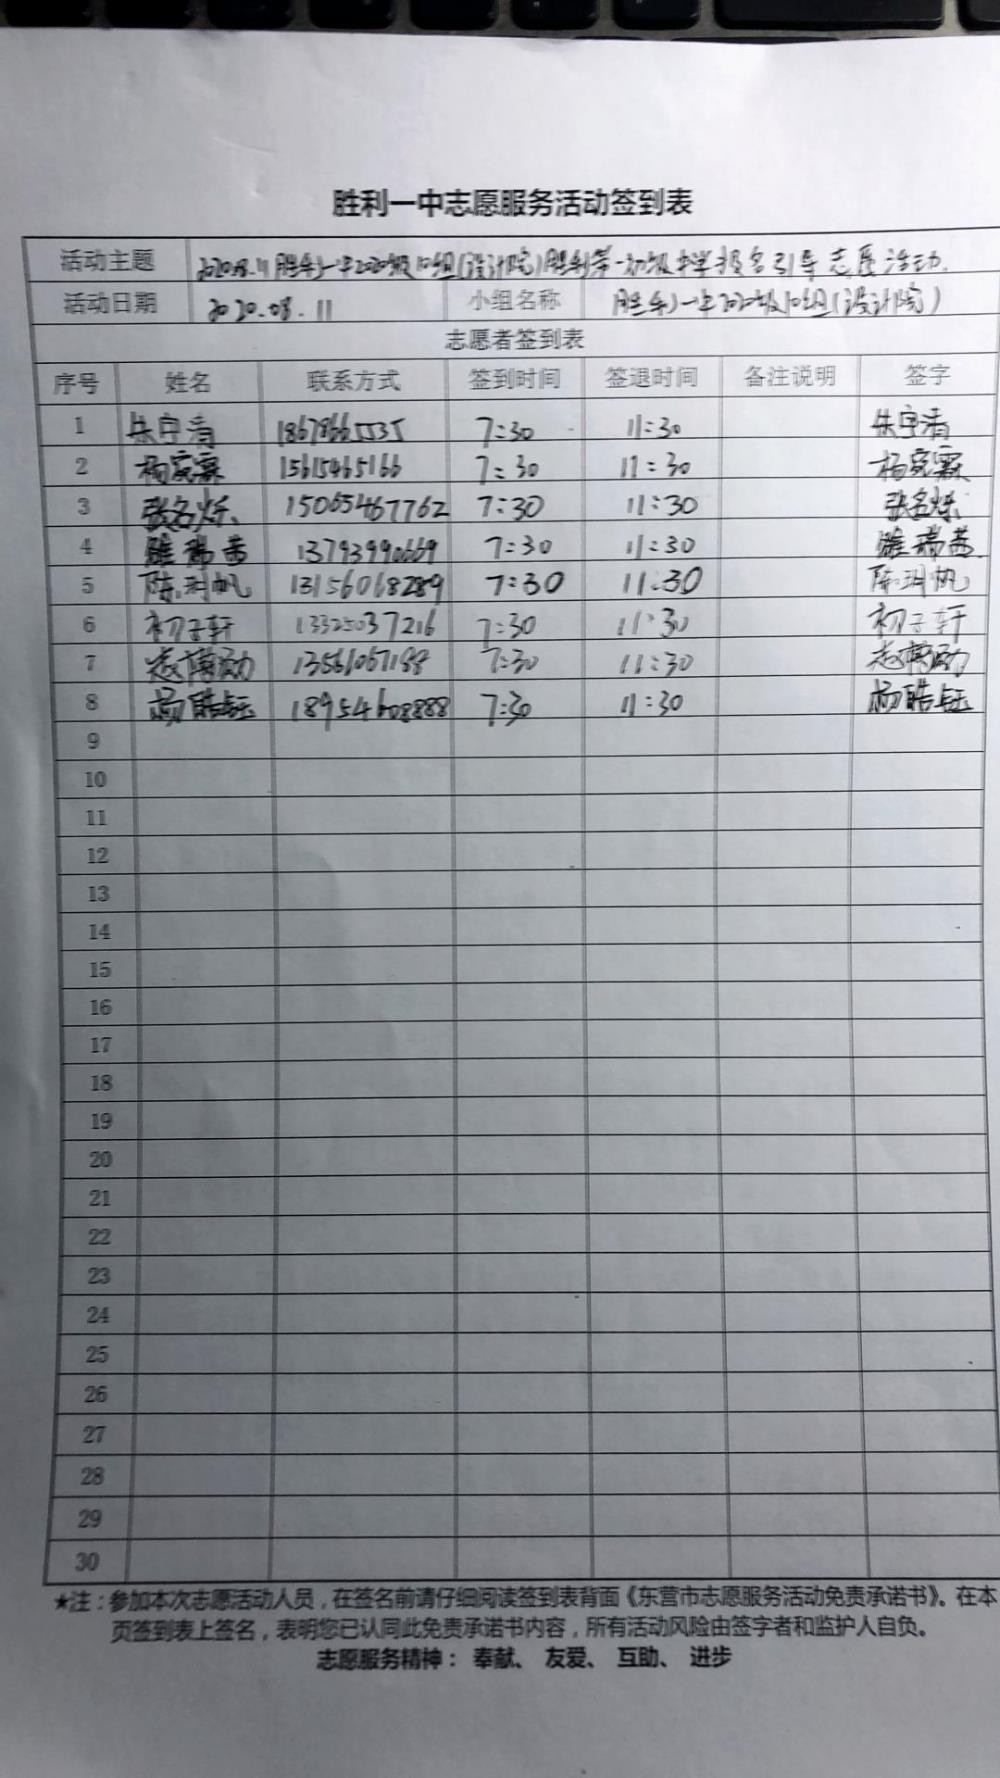 胜利一中志愿服务活动签到表
活动主题 2020.08.11胜利一中2020级10组(设计院)胜利第一初级中学报名引导志愿活动.
活动日期 2020.08.11 小组名称 胜利一中2020级10组(设计院)
志愿者签到表
序号 姓名 联系方式 签到时间 签退时间 备注说明 签字
1 朱宇清 18678665535 7:30 11:30 朱宇清
2 杨宛霖 15615465166 7:30 11:30 杨宛霖
3 张名烁 15065467762 7:30 11:30 张名烁
4 瑞茜 13793990669 7:30 11:30 瑞茜
5 陈玥帆 13156068289 7:30 11:30 陈玥帆
6 初子轩 13325037216 7:30 11:30 初子轩
7 13561067188 7:30 11:30
8 杨皓钰 18954608888 7:30 11:30 杨皓钰
9
10
11
12
13
14
15
16
17
18
19
20
21
22
23
24
25
26
27
28
29
30
★注：参加本次志愿活动人员，在签名前请仔细阅读签到表背面《东营市志愿服务活动免责承诺书》。在本
页签到表上签名，表明您已认同此免责承诺书内容，所有活动风险由签字者和监护人自负。
志愿服务精神： 奉献、 友爱、 互助、 进步